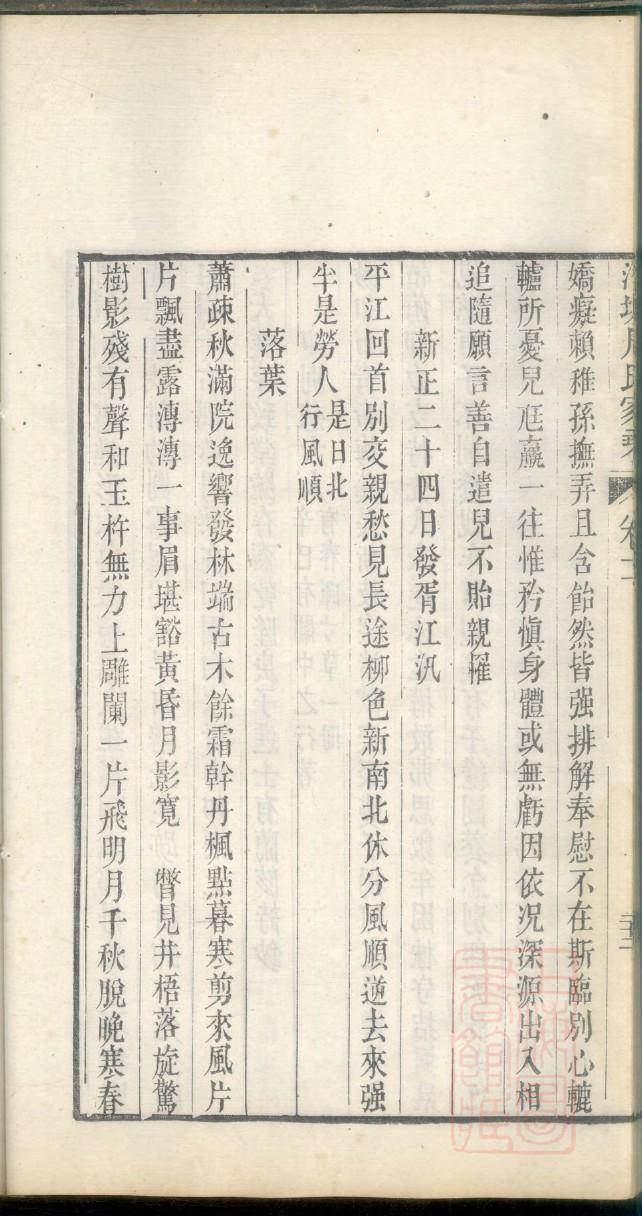 周氏家 卷二
嬌癡賴稚孫撫弄且含飴然皆强排解奉慰不在斯臨別心轆
轤所憂兒尫羸一往惟矜愼身體或無虧因依况深源出入相
追隨願言善自遣兒不貽親罹
新正二十四日發胥江汎
平江回首別交親愁見長途柳色新南北休分風順逆去來强
半是勞人是日北行風順
落葉
蕭疎秋滿院逸響發林端古木餘霜幹丹楓點暮寒剪來風片
片飄盡露漙漙一事眉堪豁黃昏月影寬 瞥見井梧落旋驚
樹影殘有聲和玉杵無力上雕闌一片飛明月千秋脫晚寒春